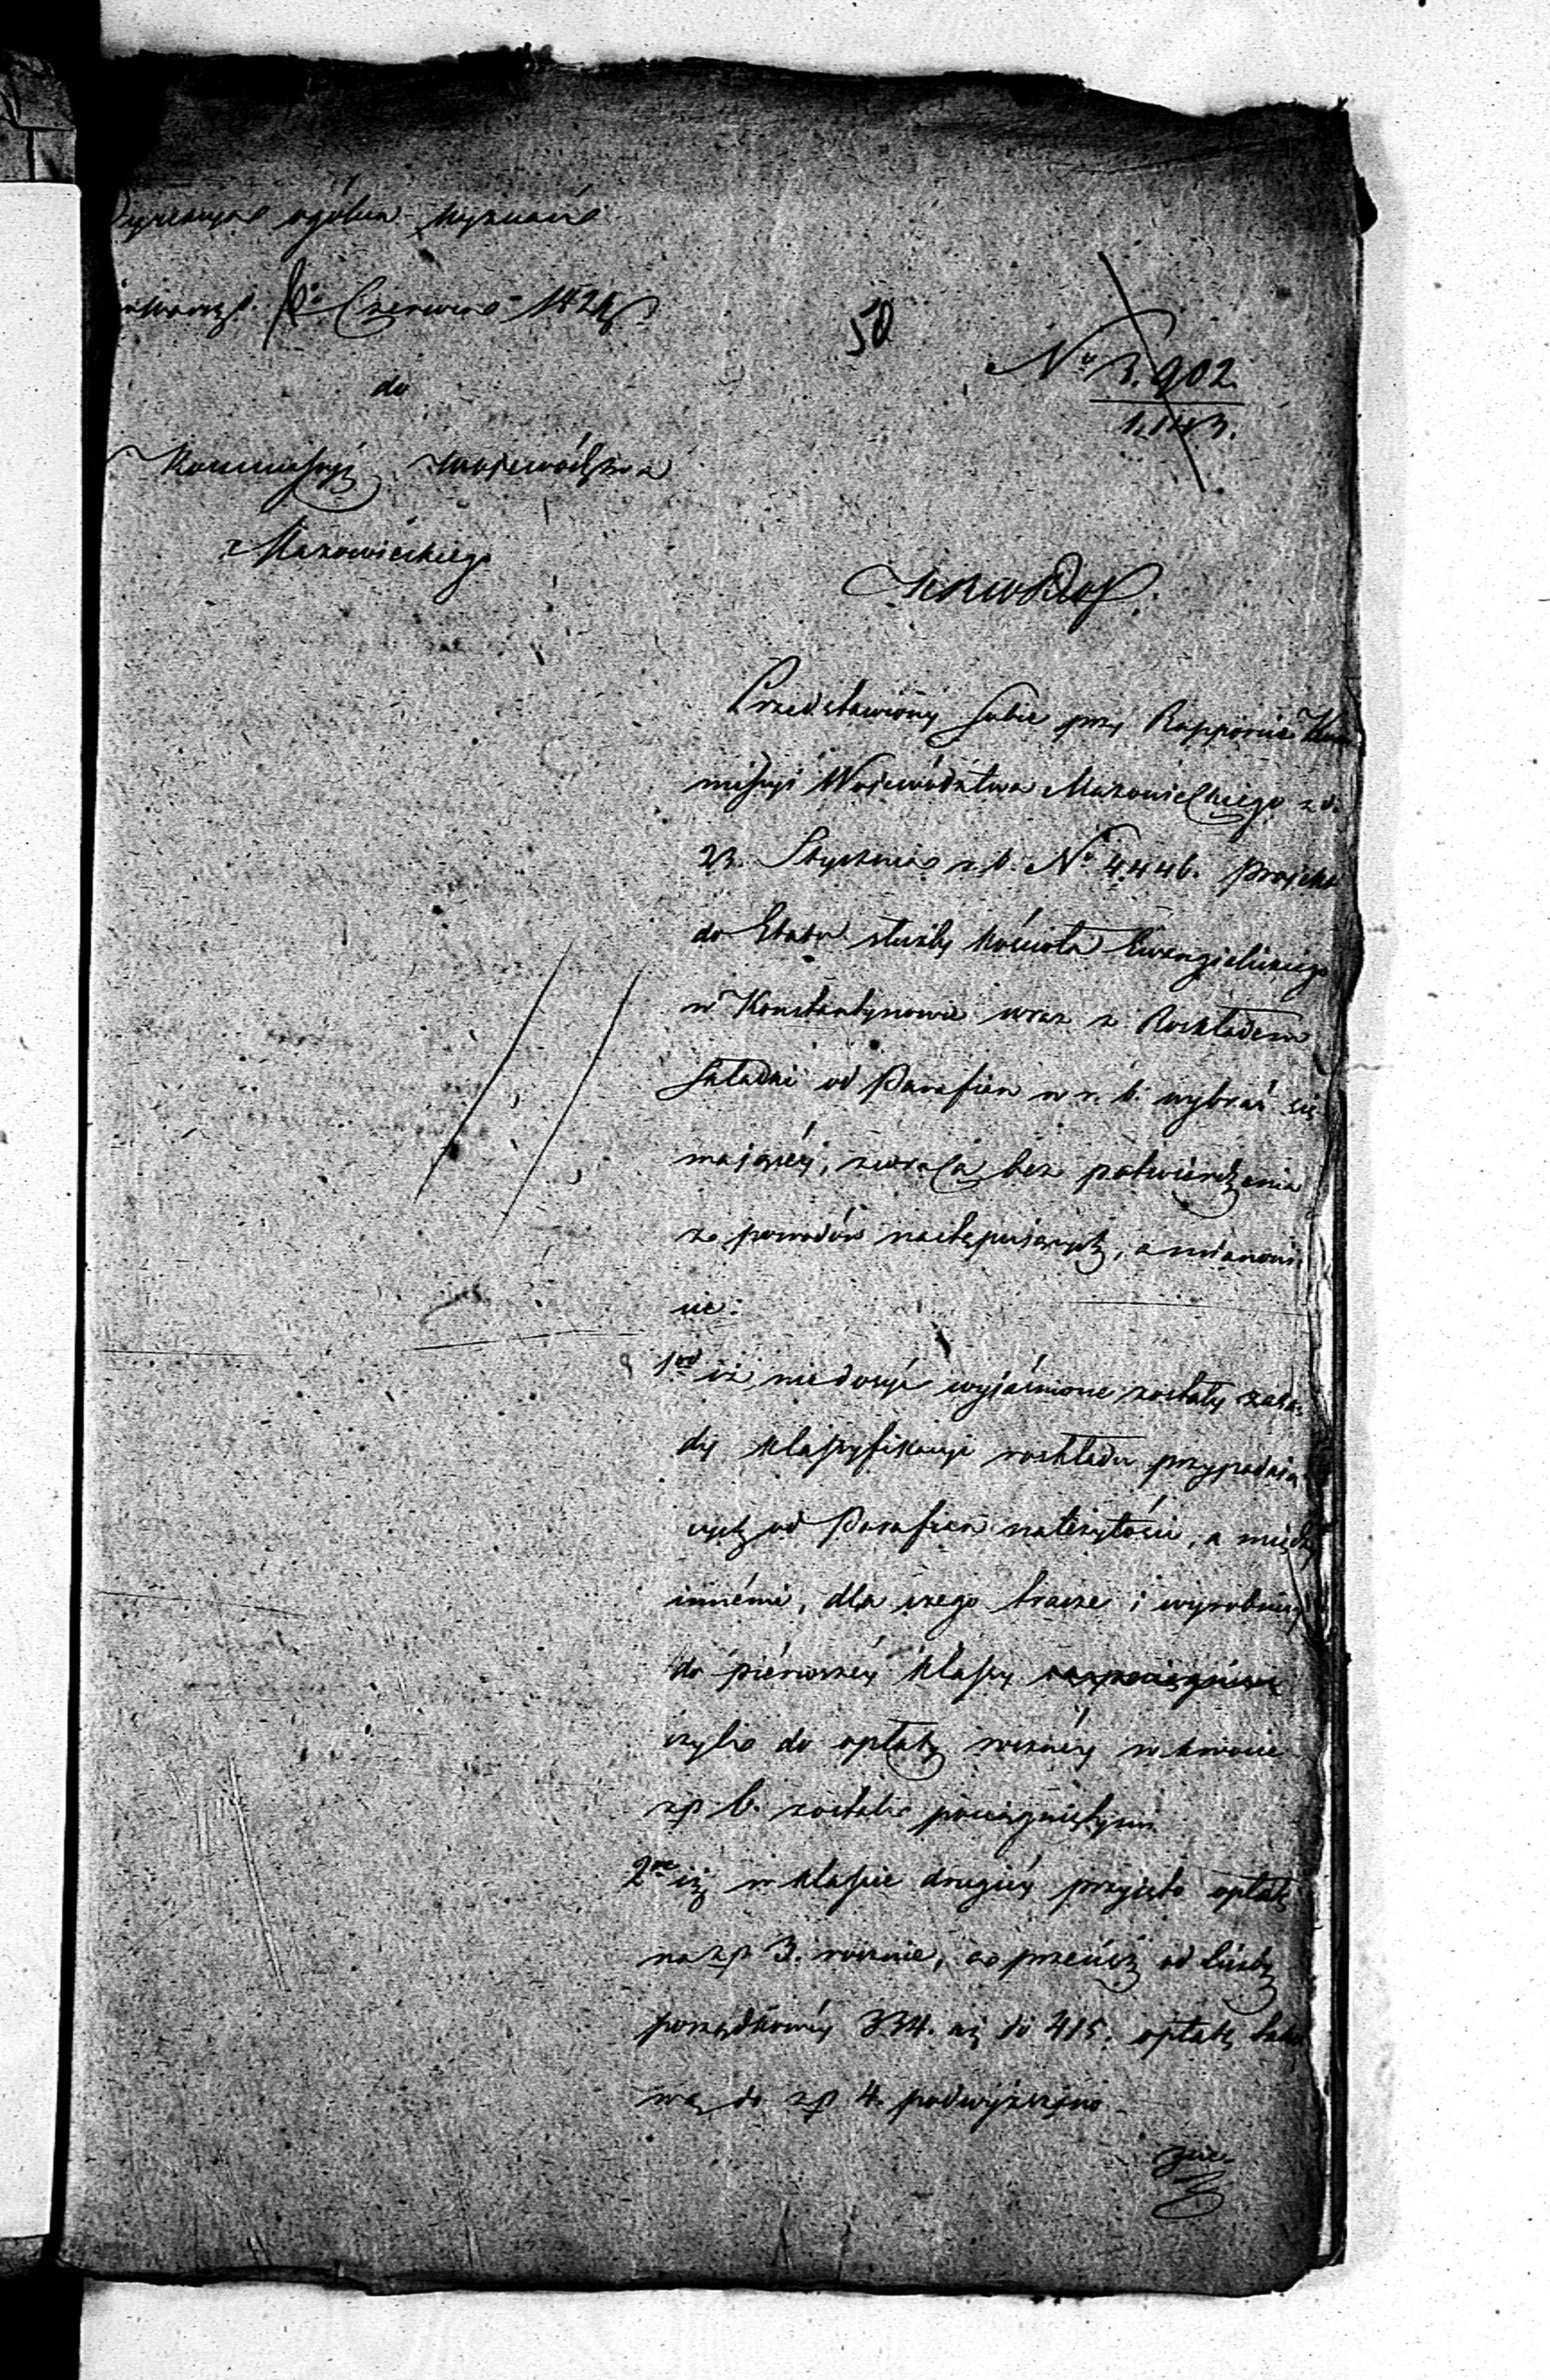 ogólna wyznań
Czerwca 182
50
No 3.902.
1.143.
do
Kommissyi Województwa
Mazowieckiego
Przedstawiony sobie przy Rapporcie Kom
missyi Województwa Mazowieckiego z d.
23. Stycznia r. b. No 4446. projekt
do Etatu służby kościoła Ewangielickiego
w Konstantynowie wraz z Rozkładem
składki od Parafian w r. b. wybrać się
maiącéy, zwraca bez potwierdzenia
z powodów następuiących, a mianowi
cie:
1od iż nie dosyć wyjaśnione zostały zasa-
dy klassyfikacyi rozkładu przypadaią
cych od Parafian należytości, a między
innémi, dla czego tracze i wyrobnicy
do pierwszéy klassy
czyli do opłaty roczney w kwocie
zp 6. zostali pociągniętymi
2re iż w klassie drugiéy przyięto opłatę
na zp 3. rocznie, a przecież od liczby
porządkowéy 334. aż do 415. opłatę tako
wą do zp 4. podwyższono.